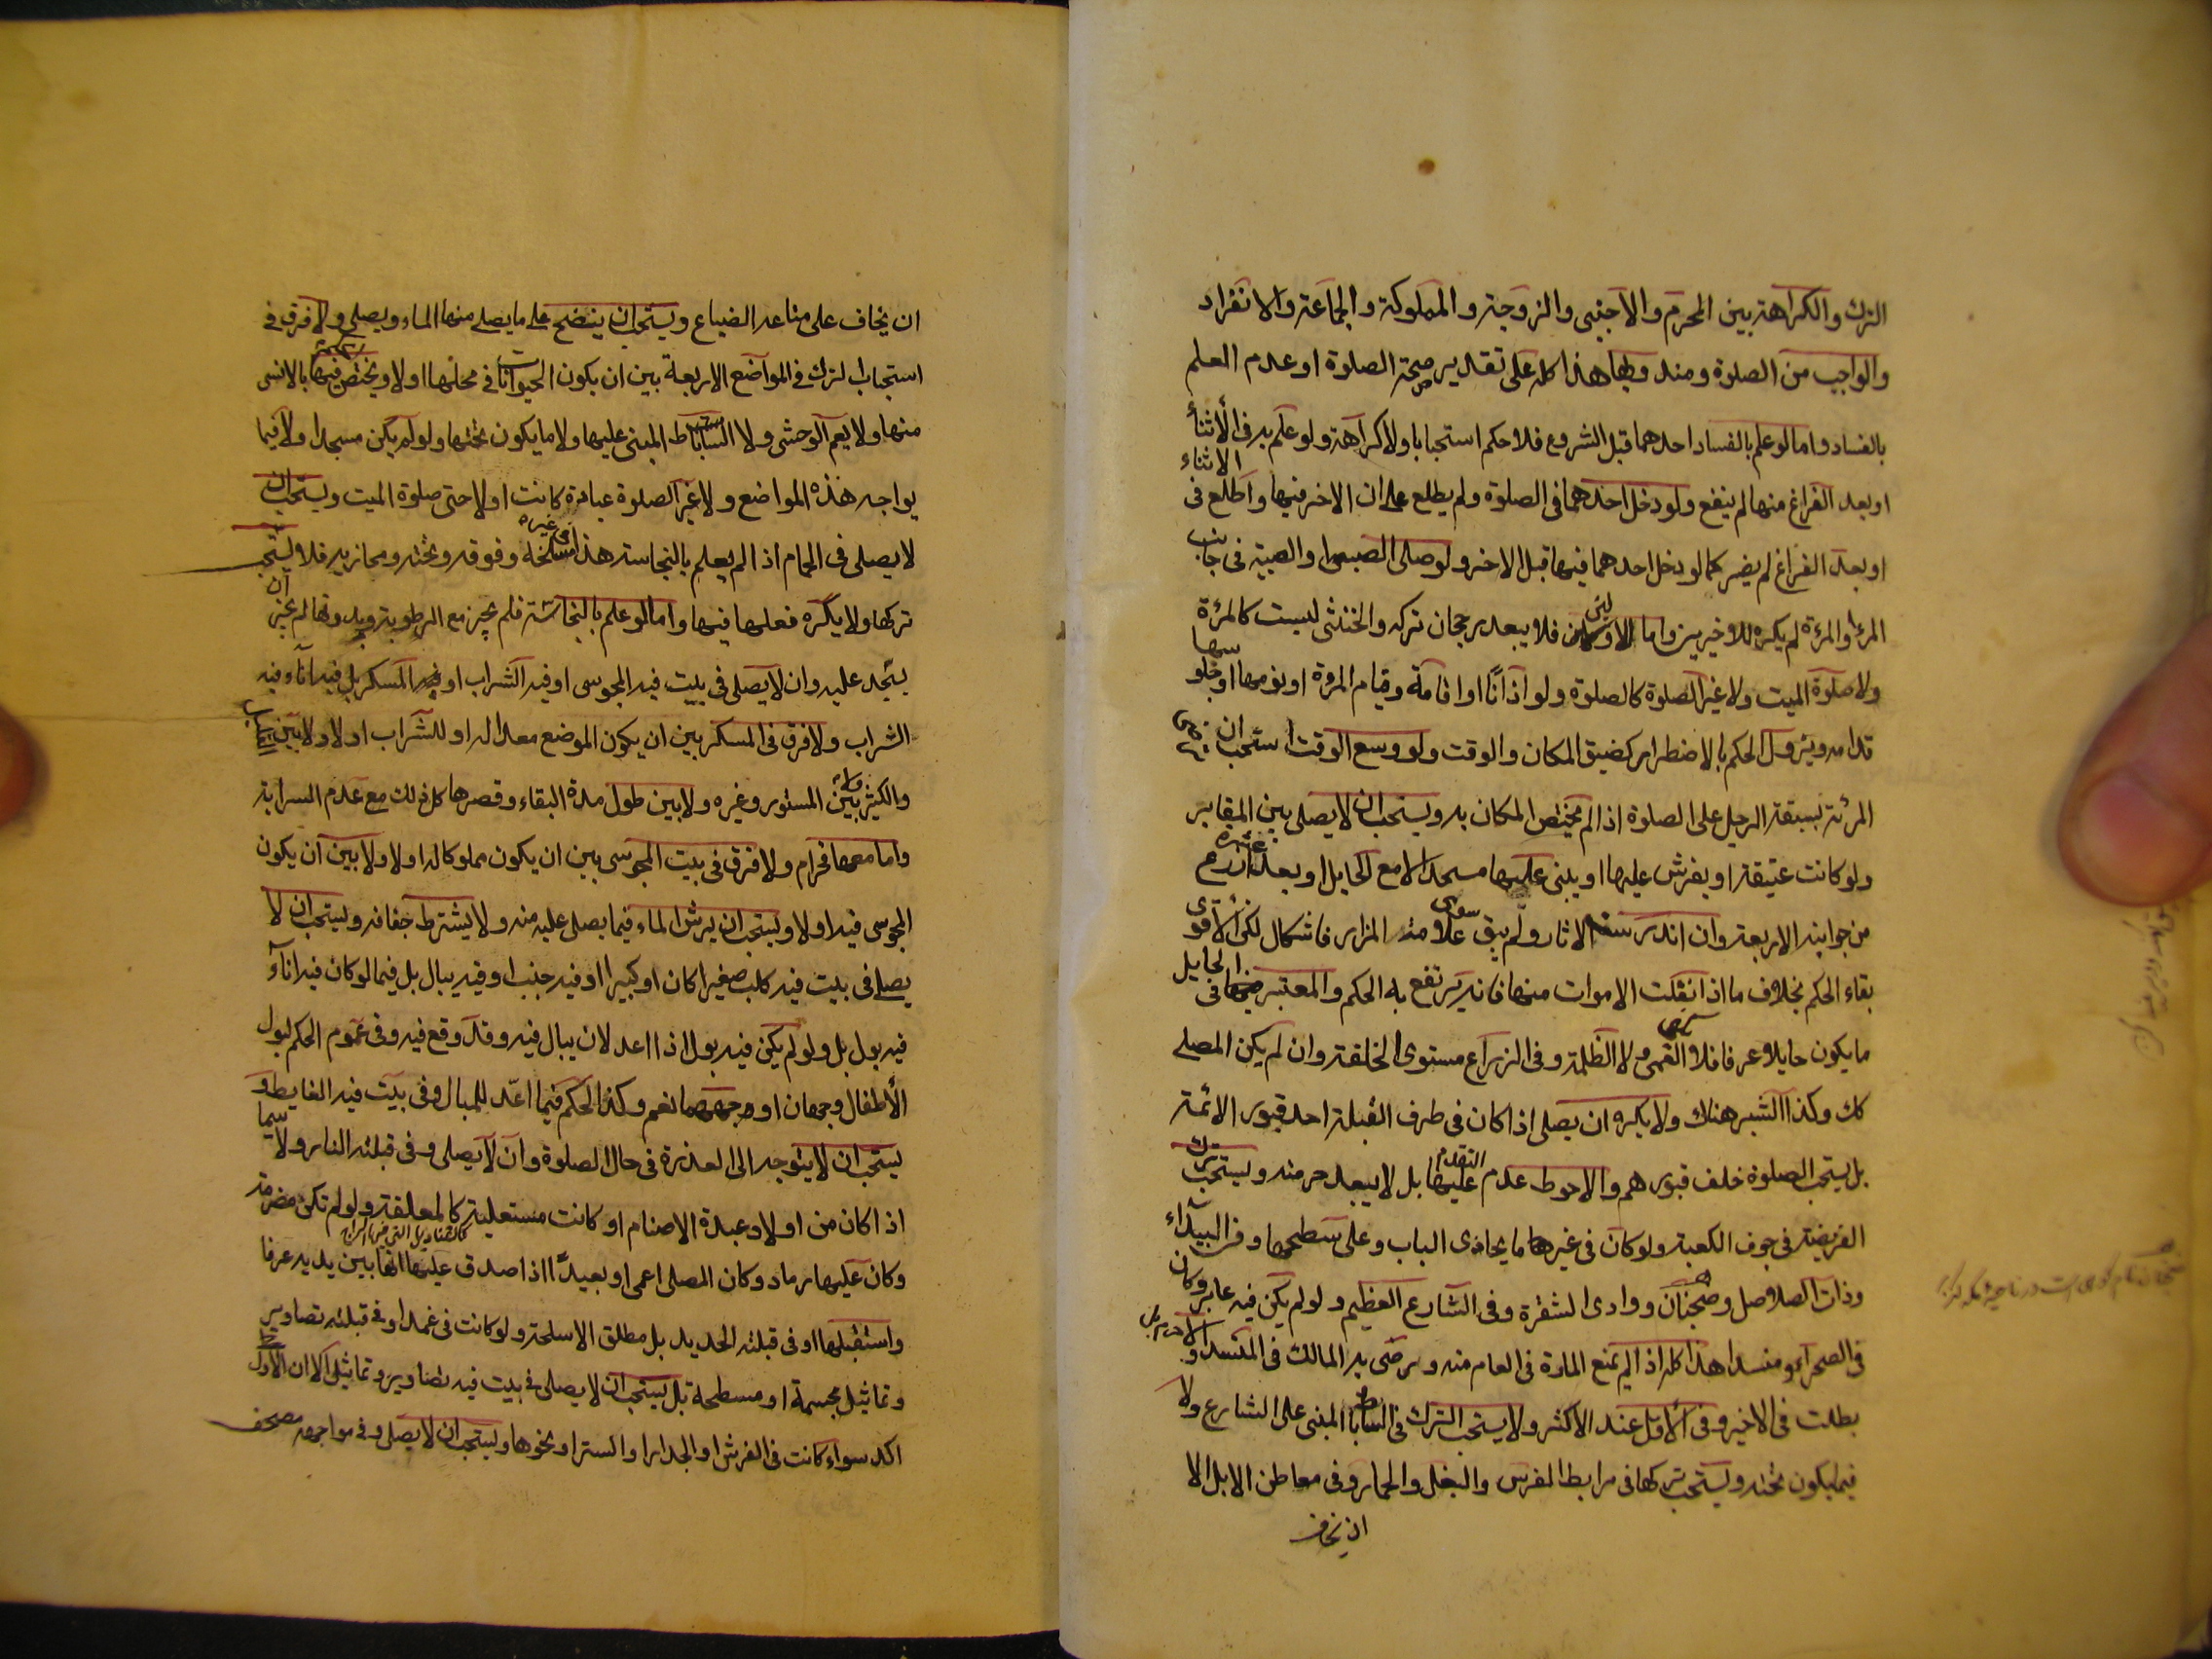 الترك والكراهة بين المحرم والاجنبى والزوجة والمملوكة والجماعة والانفراد
والواجب من الصلوة ومندوبها هذا كله على تقدير صحة الصلوة او عدم العلم
بالفساد واما لو علم بالفساد احدهما قبل الشروع فلا حكم استحبابا ولا كراهة ولو علم به فى الاثناء
او بعد الفراغ منها لم ينفع ولو دخل احدهما فى الصلوة ولم يطلع على ان الاخر فيها واطلع فى الاثناء
او بعد الفراغ لم يضر كما لو دخل احدهما فيها قبل الاخر ولو صلى الصبى او الصبية فى جانب
المرء او المرءة لم يكره للاخيرين واما الاولين فلا يبعد رجحان تركه والخنثى ليست كالمرءة
ولا صلوة الميت ولا غير الصلوة كالصلوة ولو اذانًا او اقامة وقيام المرءة او نومها او جلوسها
قدامه ويزول الحكم بالاضطرار كضيق المكان والوقت ولو وسع الوقت استحب ان
المرئة بسبقة الرجل على الصلوة اذا لم يختص المكان به ويستحب ان لا يصلى بين المقابر
ولو كانت عتيقة او يفرش عليها او يبنى عليها مسجد الا مع الحايل او بعد عشرة اذرع
من جوانبه الاربعة وان اندرست الاثار ولم يبق علامة سوى المزار فاشكال لكن الاقوى
بقاء الحكم بخلاف ما اذا انفكت الاموات منها فانه يرتفع به الحكم والمعتبر فى الحايل
ما يكون حايلا عرفا فلا العمى ولا الظلمة وفى الزراع مستوى الخلقة وان لم يكن المصلى
كك وكذا الشبر هناك ولا يكره ان يصلى اذا كان فى طرف القبلة احد قبور الائمة
بل يستحب الصلوة خلف قبورهم والاحوط عدم التقدم عليها بل لا يبعد حرمته ويستحب ترك
الفريضة فى جوف الكعبة ولو كان فى غيرها ما يحاذى الباب وعلى سطحها وفى البيداء
وذات الصلاصل وضجنان ووادى الشقرة وفى الشارع العظيم ولو لم يكن فيه عابر وكان
فى الصحراء ومنسدا هذا كله اذا لم تمنع المارة فى العام منه ورضى به المالك فى المنسد والا
بطلت فى الاخير وفى الاول عند الاكثر ولا يستحب الترك فى الساباط المبنى على الشارع ولا
فيما يكون تحته ويستحب تركها فى مرابط الفرس والبغل والحمار وفى معاطن الابل الا
ان يخاف
ان يخاف على متاعه الضياع ويستحب ان ينضح على ما يصلى منها الماء ويصلى ولا فرق فى
استحباب الترك فى المواضع الاربعة بين ان يكون الحيوانات فى محلها او لا ويختص فيها بالانسى
منها ولا يعم الوحشى ولا الساباط المبنى عليها ولا ما يكون تحتها ولو لم يكن مسجدا ولا فيما
يواجه هذه المواضع ولا غير الصلوة عبادة كانت او لا حتى صلوة الميت ويستحب ان
لا يصلى فى الحمام اذا لم يعلم بالنجاسة هذا فى غير مسلخه وفوقه وتحته ومحازيه فلا يستحب
تركها ولا يكره فعلها فيها واما لو علم بالنجاسة فلم يجز مع الرطوبة وبدونها لم يجز ان
يسجد عليه وان لا يصلى فى بيت فيه المجوسى او فيه الشراب او المسكر بل فيه اناء فيه
الشراب ولا فرق فى المسكر بين ان يكون الموضع معدا له او للشراب او لا ولا بين
والكثير وبين المستور وغيره ولا بين طول مدة البقاء وقصرها كل ذلك مع عدم السراية
واما معها فحرام ولا فرق فى بيت المجوسى بين ان يكون مملوكا له او لا ولا بين ان يكون
المجوسى فيه او لا ويستحب ان يرش الماء فيما يصلى عليه منه ولا يشترط جفافه ويستحب ان لا
يصلى فى بيت فيه كلب صغيرا كان او كبيرا او فيه جنب او فيه يبال بل فيما لو كان فيه اناء
فيه بول بل ولو لم يكن فيه بول اذا اعد لان يبال فيه وقد وقع فيه وفى عموم الحكم لبول
الأطفال وجهان اوجههما نعم وكذا الحكم فيما اعد للمبال وفى بيت فيه الغايط و
يستحب ان لا يتوجه الى العذرة فى حال الصلوة وان لا يصلى وفى قبلته النار ولا سيما
اذا كان من اولاد عبدة الاصنام او كانت مستعلية كالمعلقة ولو لم تكن مضرمة
وكان عليها رماد وكان المصلى اعمى او بعيدًا اذا صدق عليها انها بين يديه عرفا
واستقبلها او فى قبلته الحديد بل مطلق الاسلحة ولو كانت فى غمد او فى قبلته تصاوير
وتماثيل مجسمة او مسطحة بل يستحب ان لا يصلى فى بيت فيه تصاوير وتماثيل الا ان الاول
اكد سواء كانت فى الفرش او الجدار او الستر او نحوها ويستحب ان لا يصلى وفى مواجهه مصحف